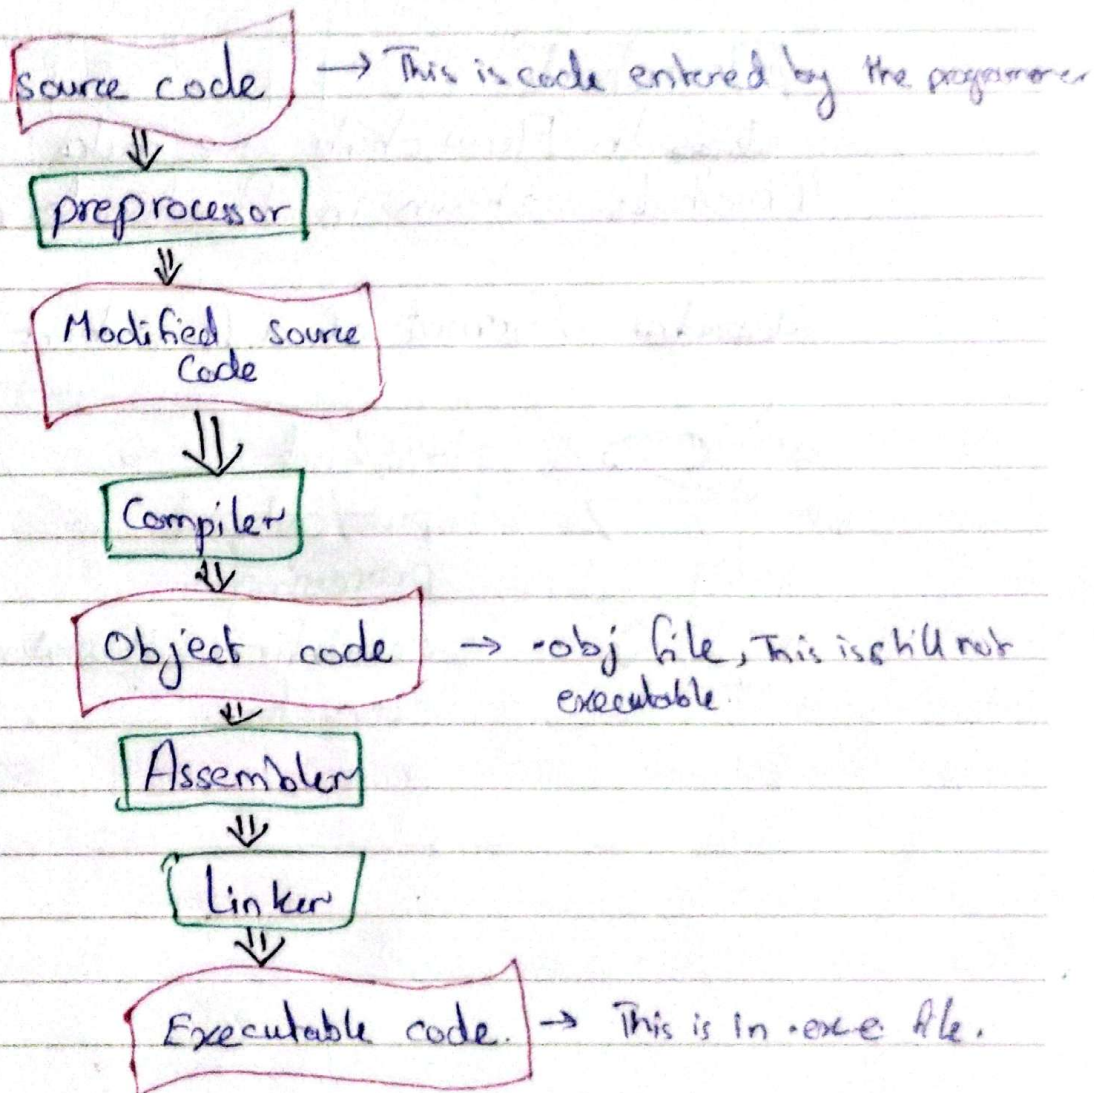 source code → This is code entered by the programmer
preprocessor
Modified source
Code
Compiler
Object code → .obj file, This is still not
executable.
Assembler
Linker
Executable code. → This is in .exe file.